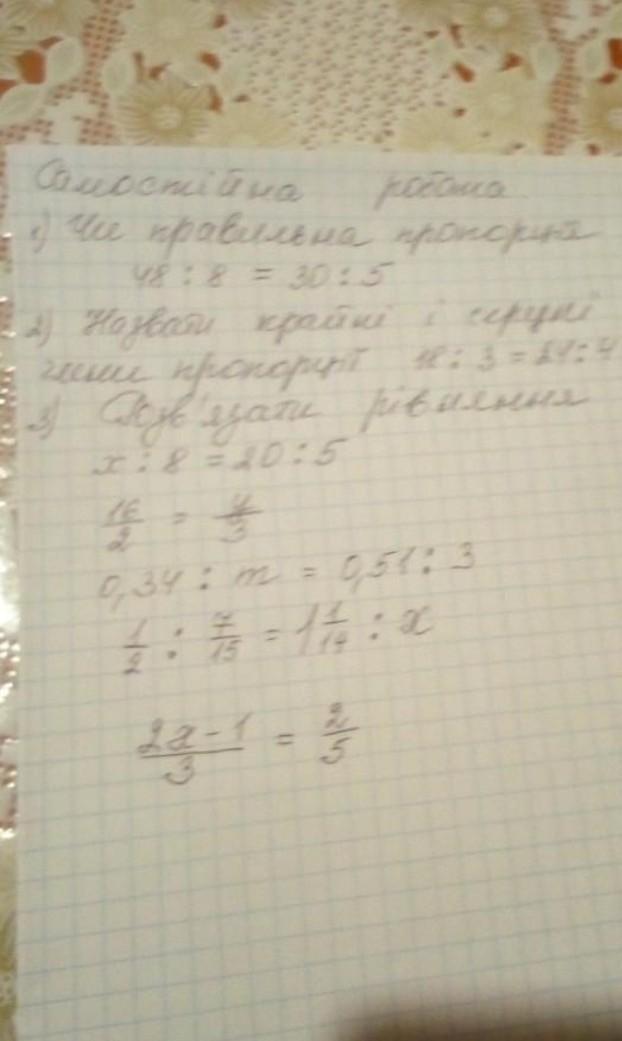 Самостійна робота
1) Чи правильна пропорція
48 : 8 = 30 : 5
2) Назвати крайні і середні
члени пропорції 18 : 3 = 24 : 4
3) Розв'язати рівняння
x : 8 = 20 : 5
16/2 = y/3
0,34 : m = 0,51 : 3
1/2 : 7/15 = 1 1/14 : x
2x - 1/3 = 2/5